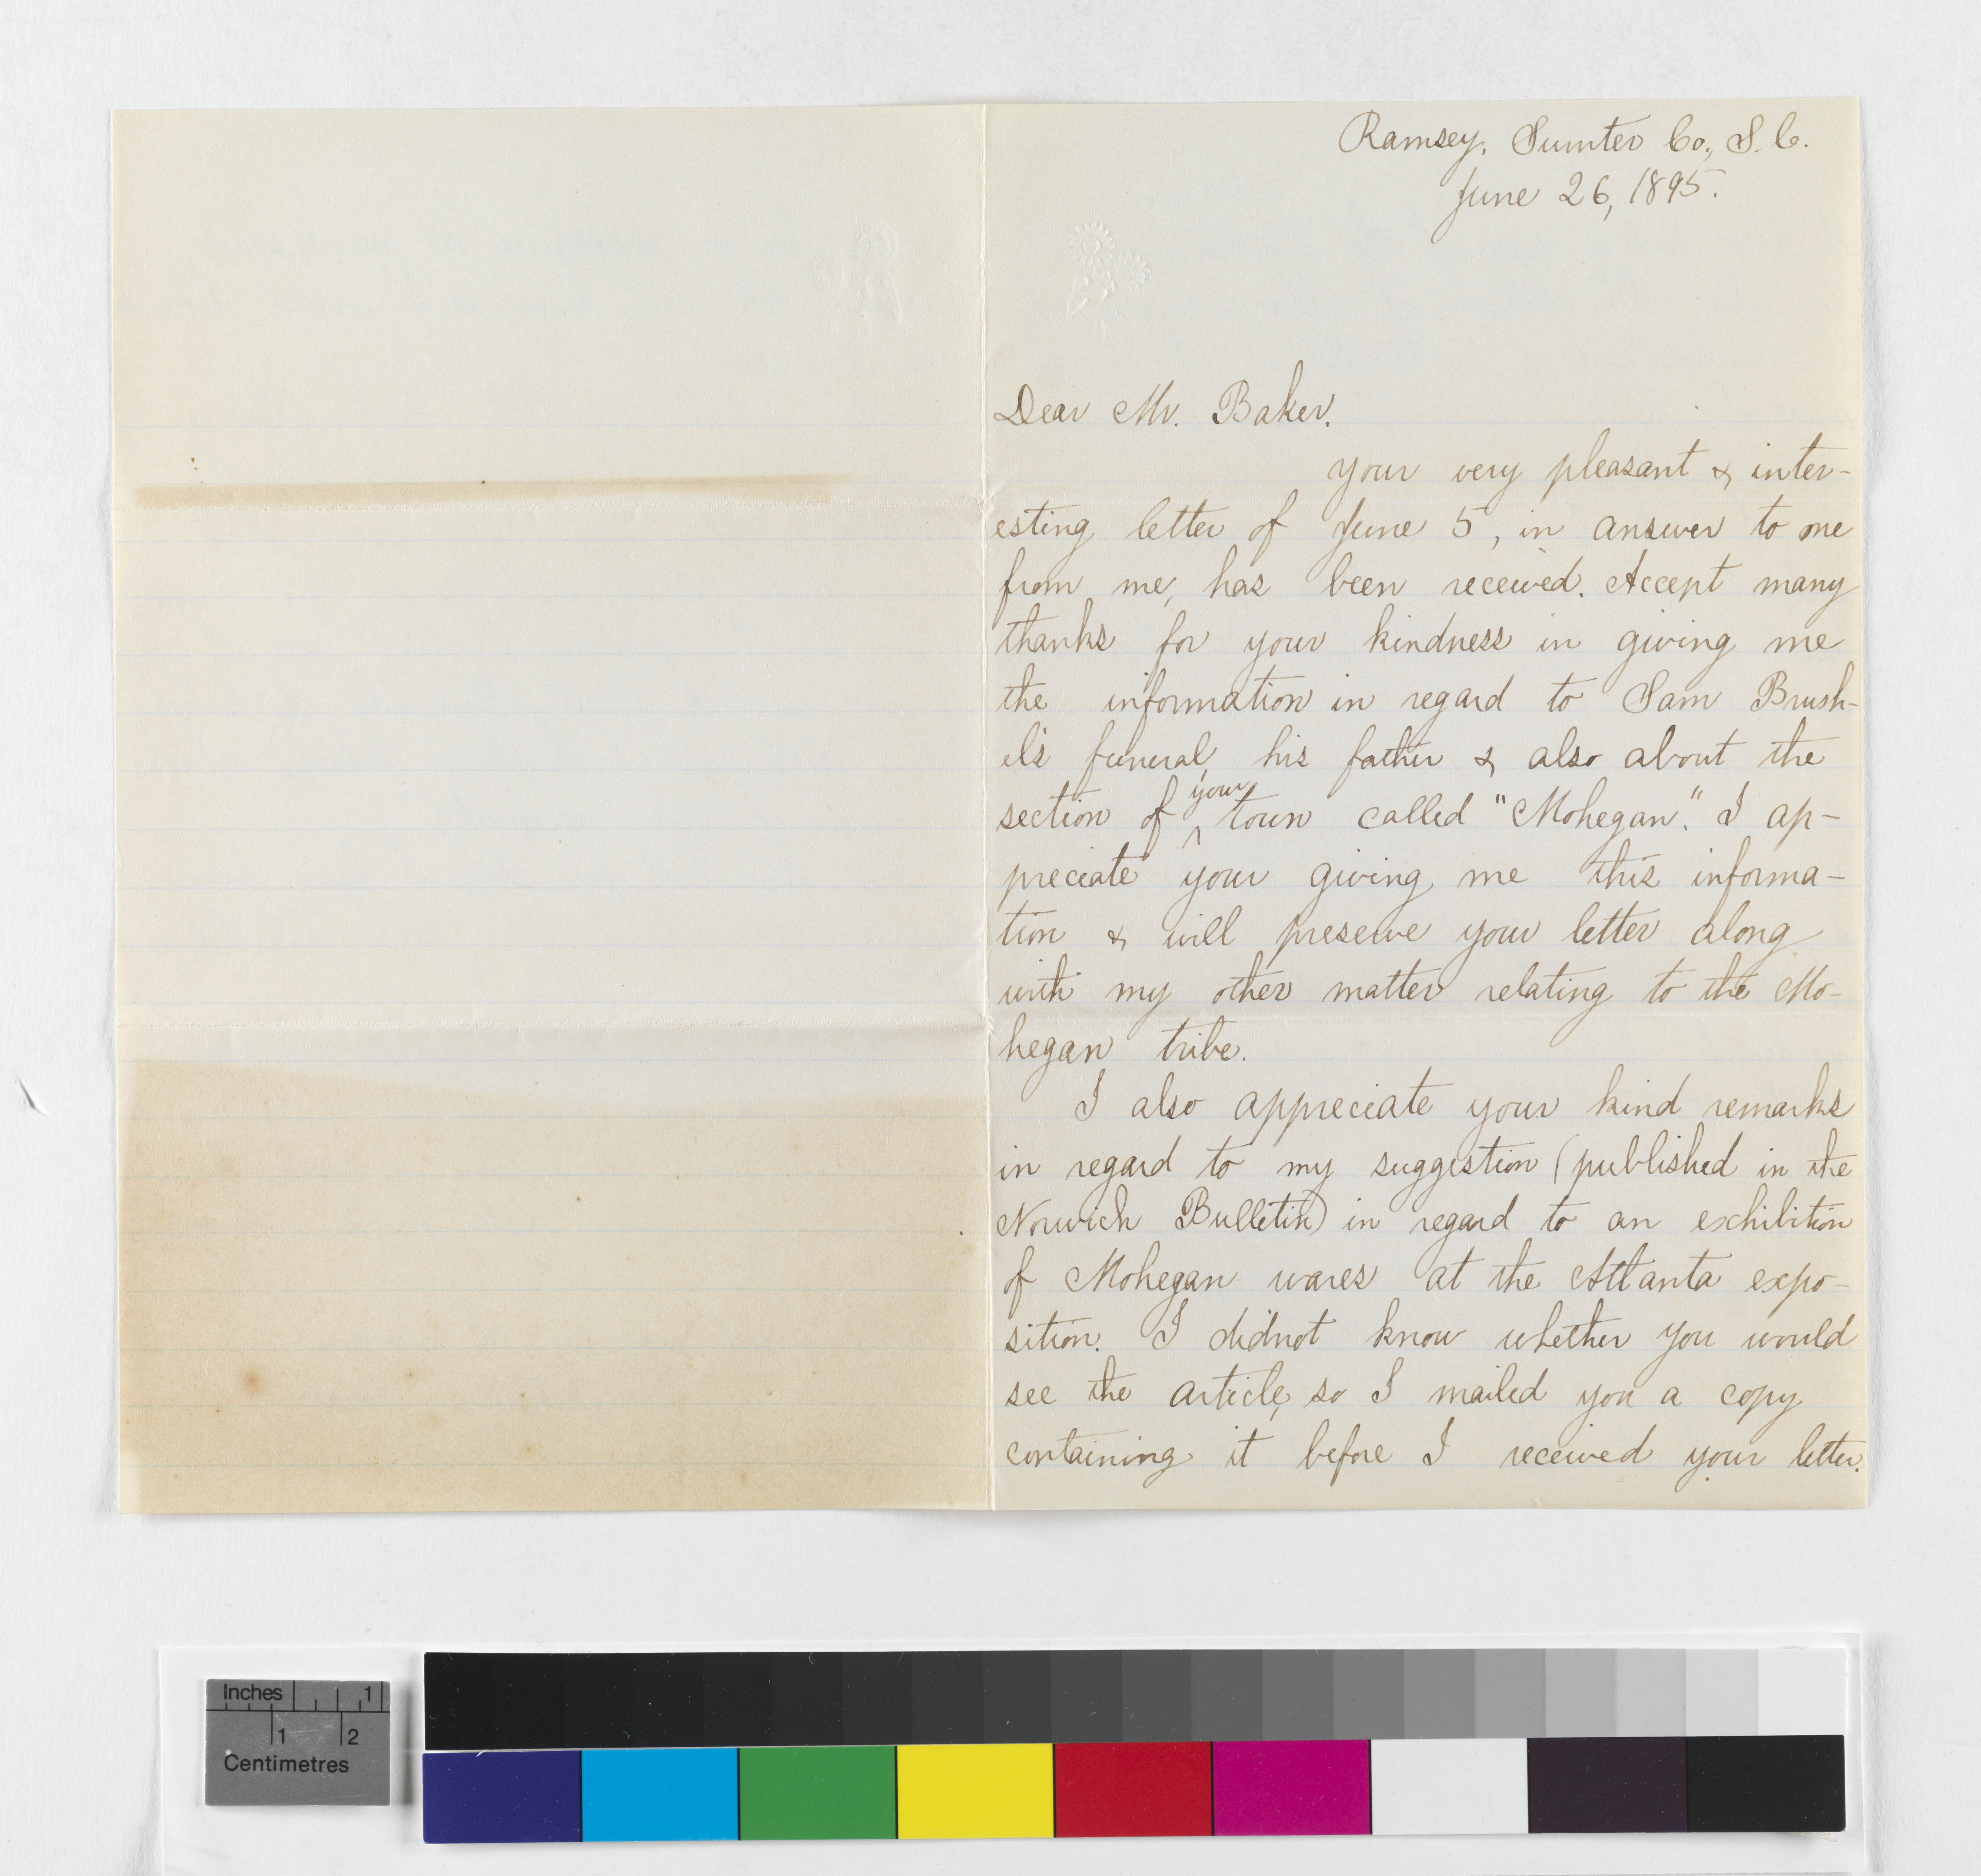 Ramsey, Sumter Co., S. C.
June 26, 1895.
Dear Mr. Baker,
your very pleasant & inter-
esting letter of June 5, in answer to one
from me, has been received. Accept many
thanks for your kindness in giving me
the information in regard to Sam Brush-
el's funeral, his father & also about the
section of your town called "Mohegan". I ap-
preciate your giving me this informa-
tion & will preserve your letter along
with my other matter relating to the Mo-
hegan tribe.
I also appreciate your kind remarks
in regard to my suggestion (published in the
Norwich Bulletin) in regard to an exhibition
of Mohegan wares at the Atlanta expo-
sition. I didnot know whether you would
see the article, so I mailed you a copy
containing it before I received your letter.
Inches 1
1 2
Centimetres